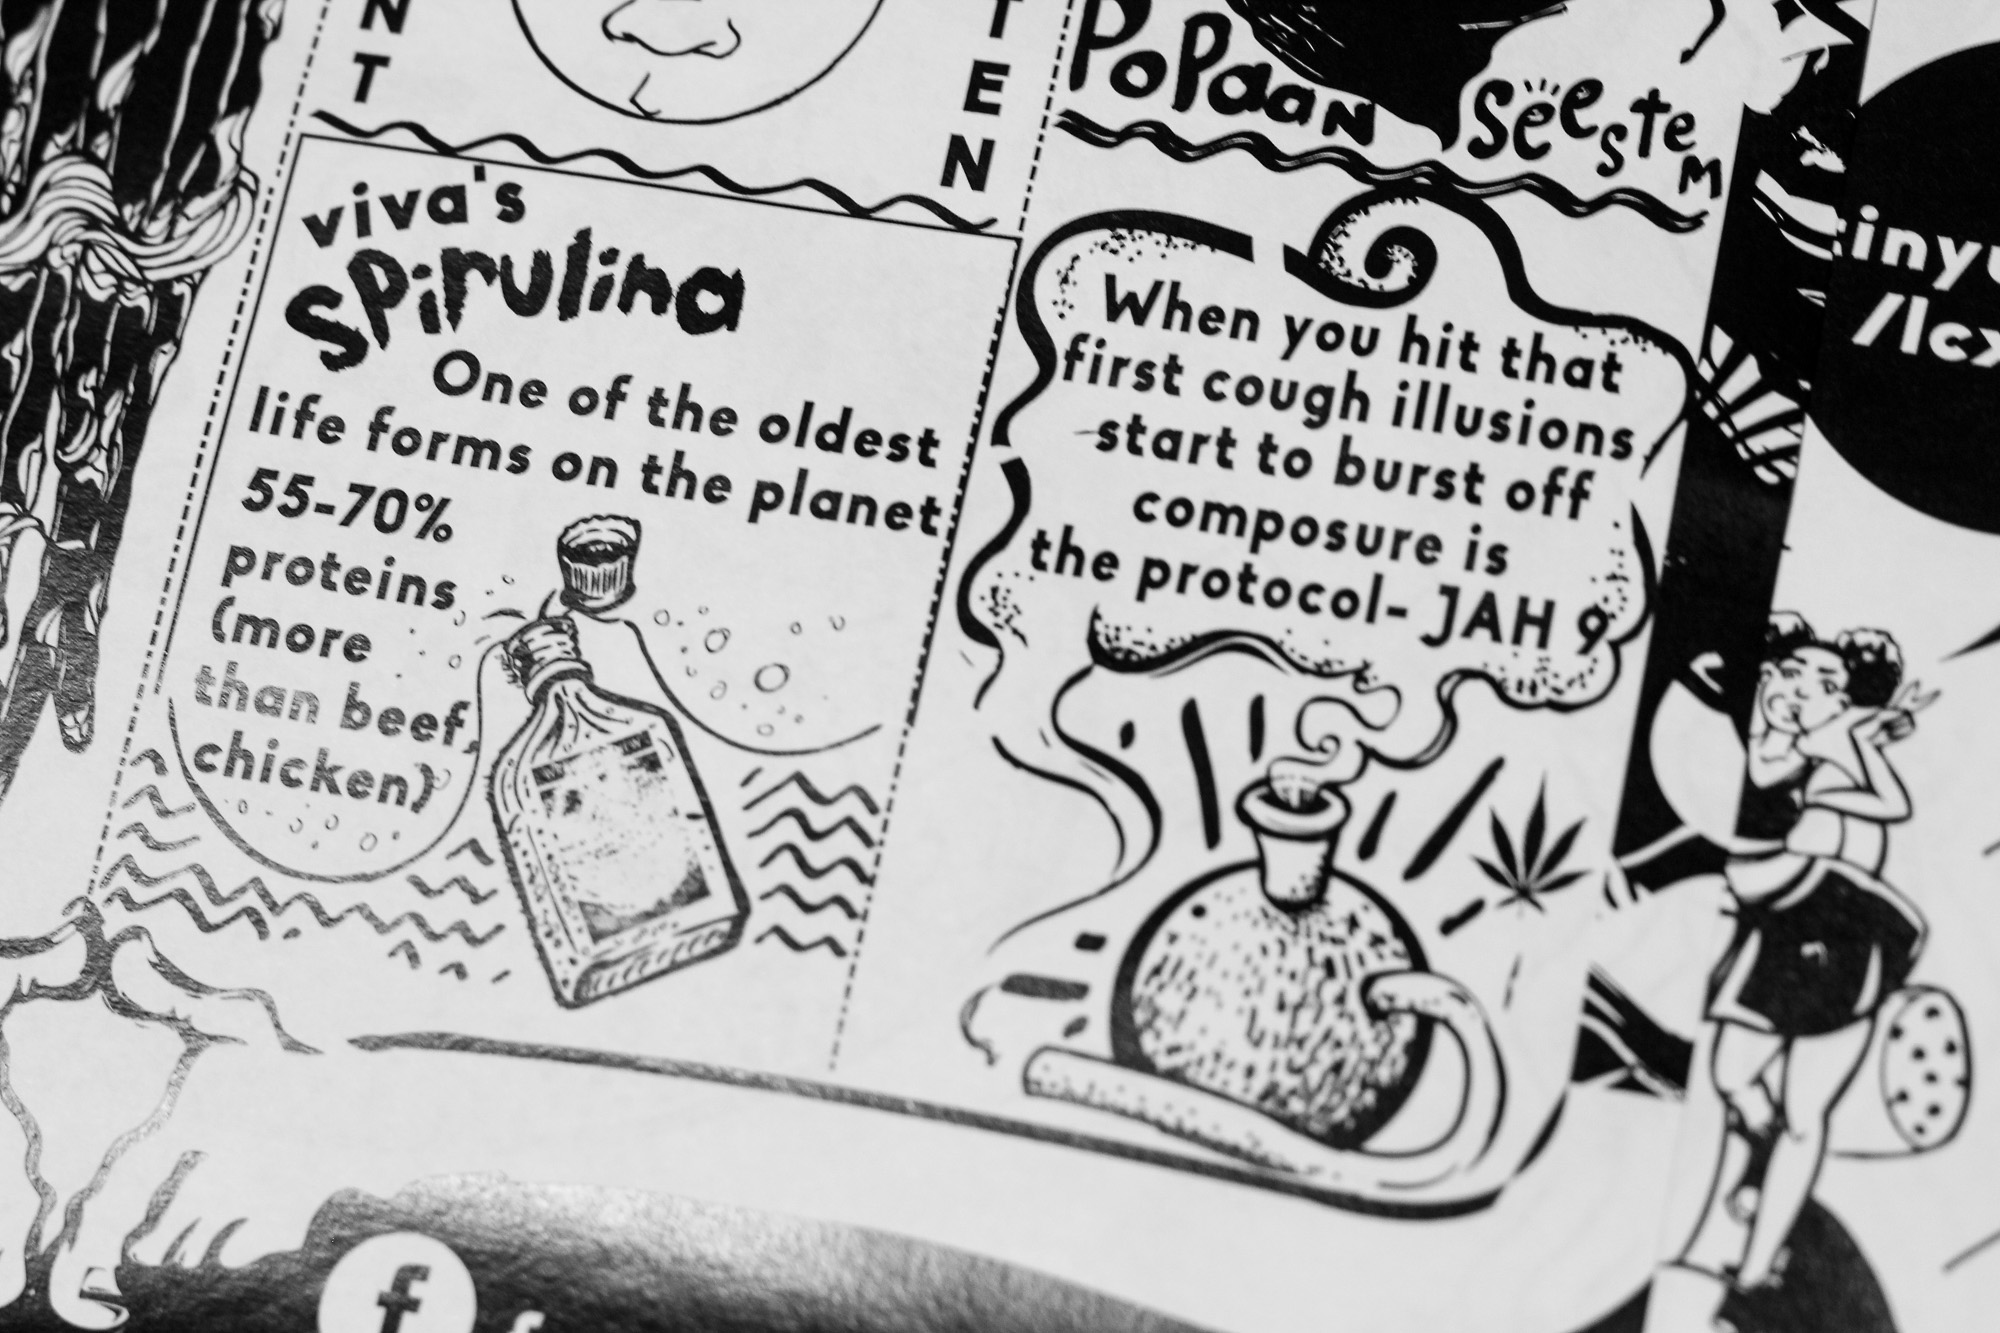 N
T
T
E
N
PoPaan
SeesteM
viva's
SPirulina
One of the oldest
life forms on the planet
55-70%
proteins
(more
than beef,
chicken)
When you hit that
first cough illusions
start to burst off
composure is
the protocol- JAH 9
inyu
/lcx
f